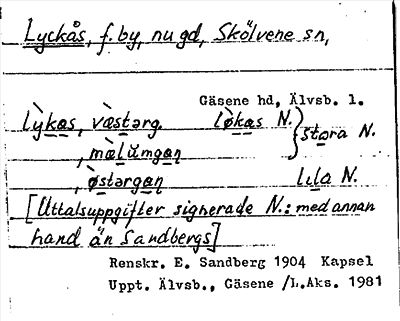 Lyckås, f. by, nu gd, Skölvene sn,
Gäsene hd, Älvsb. l.
lỳkas, væstərg. lø̀kas N.
, mæ̀lumgan } stora N.
, ø̀stərgan lila N.
[Uttalsuppgifter signerade N.: med annan
hand än Sandbergs]
Renskr. E. Sandberg 1904 Kapsel
Uppt. Älvsb., Gäsene /L.Aks. 1981